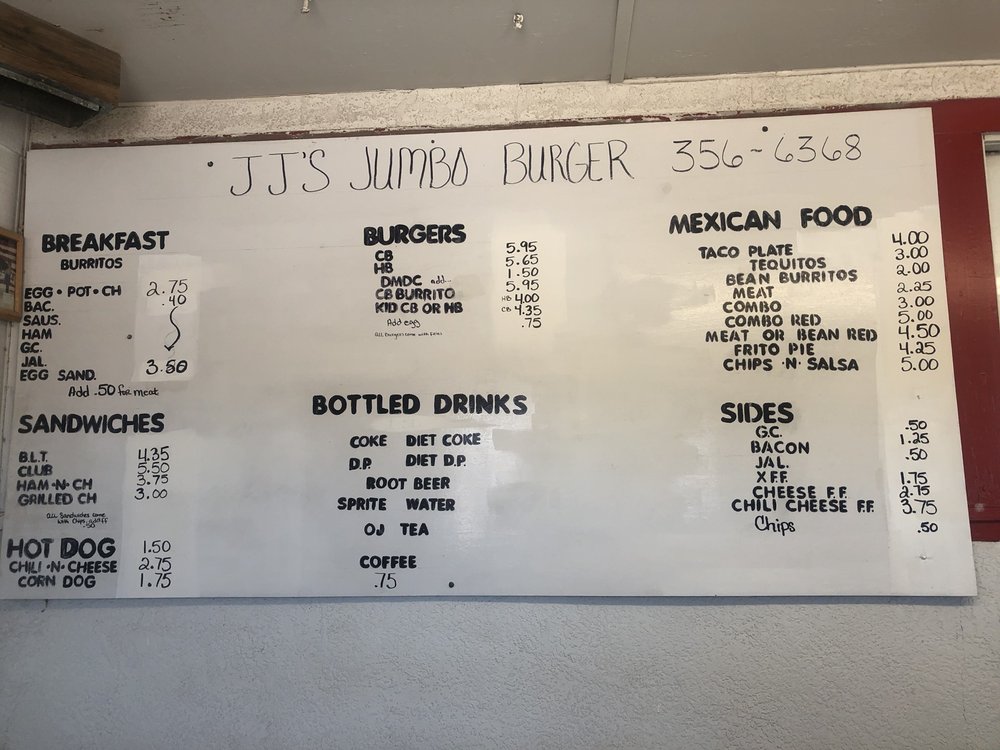 JJ'S JUMBO BURGER 356-6368
BREAKFAST
BURRITOS
EGG • POT • CH 2.75
BAC. .40
SAUS.
HAM
GC.
JAL.
EGG SAND. 3.50
Add .50 for meat
SANDWICHES
B.L.T. 4.35
CLUB 5.50
HAM•N•CH 3.75
GRILLED CH 3.00
All Sandwiches come
with Chips, add FF
.50
HOT DOG 1.50
CHILI •N• CHEESE 2.75
CORN DOG 1.75
BURGERS
CB 5.95
HB 5.65
DMDC add... 1.50
CB BURRITO 5.95
KID CB OR HB HB 4.00
CB 4.35
Add egg .75
All Burgers come with Fries
BOTTLED DRINKS
COKE DIET COKE
D.P. DIET D.P.
ROOT BEER
SPRITE WATER
OJ TEA
COFFEE
.75
MEXICAN FOOD
TACO PLATE 4.00
TEQUITOS 3.00
BEAN BURRITOS 2.00
MEAT 2.25
COMBO 3.00
COMBO RED 5.00
MEAT OR BEAN RED 4.50
FRITO PIE 4.25
CHIPS •N• SALSA 5.00
SIDES
G.C. .50
BACON 1.25
JAL. .50
X F.F. 1.75
CHEESE F.F. 2.75
CHILI CHEESE F.F. 3.75
Chips .50